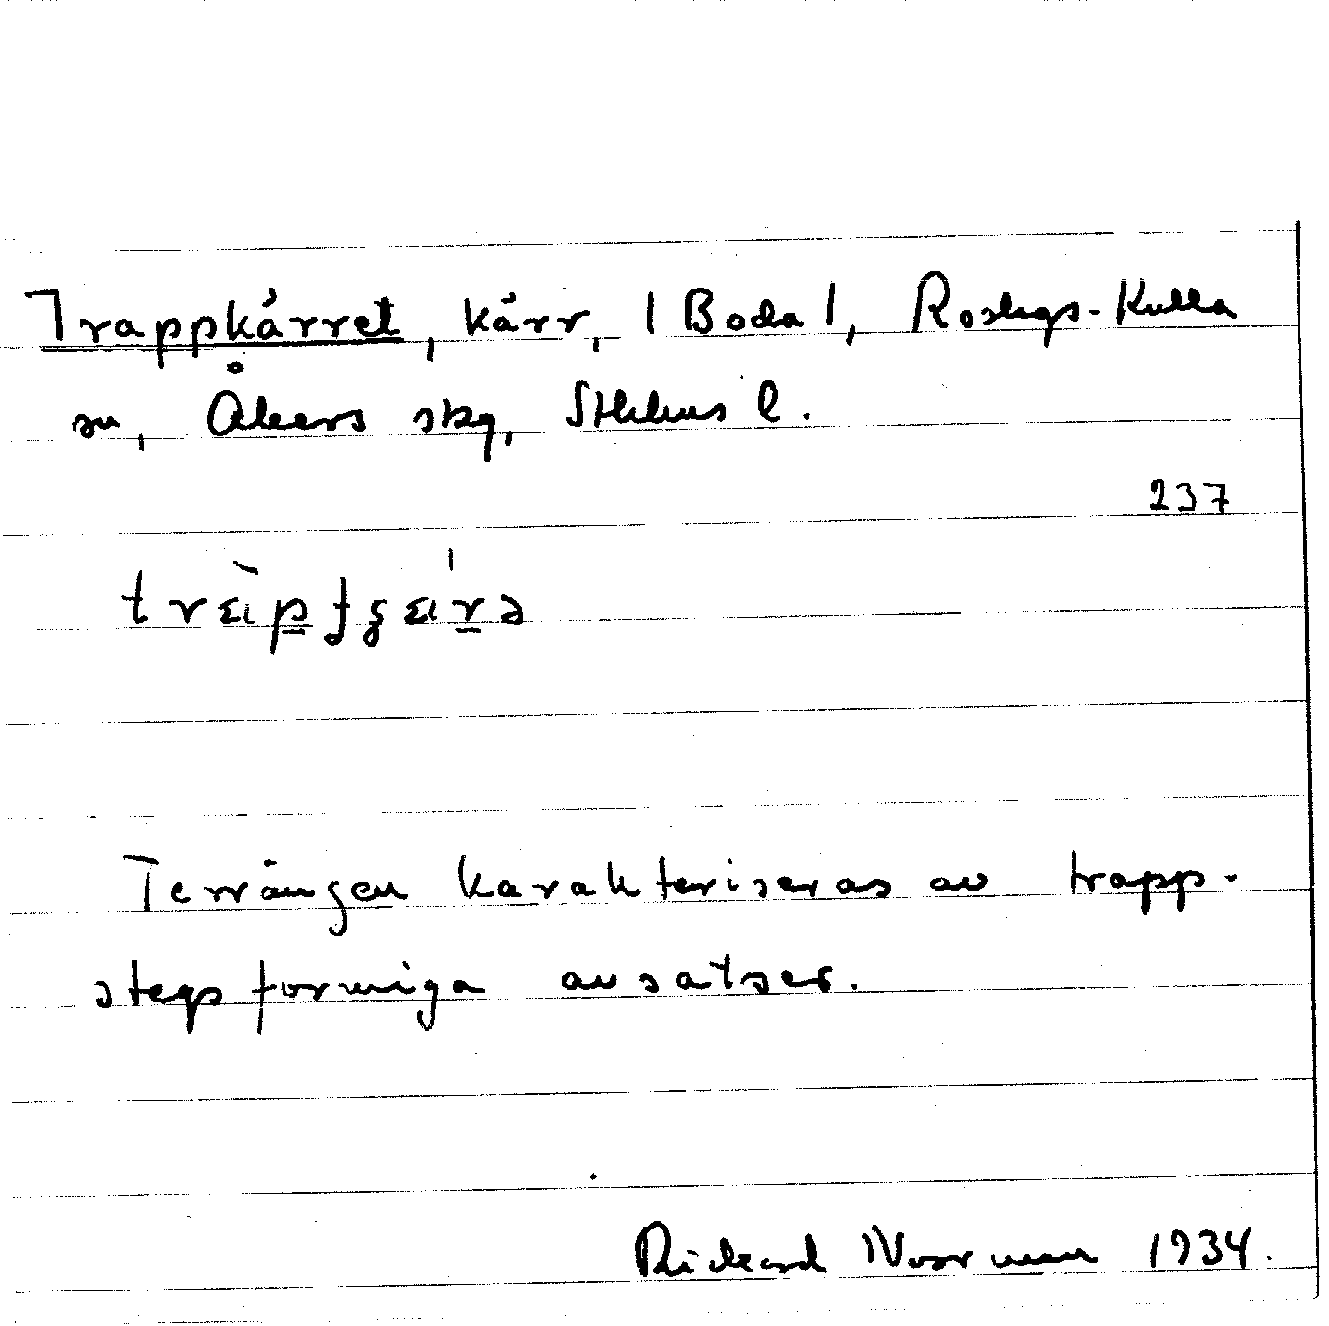 Trappkärret, kärr, |Boda|, Roslags-Kulla
sn, Åkers skg, Sthlms l.
237
Terrängen karakteriseras av trapp-
stegsformiga avsatser.
Rickard Norrman 1934.